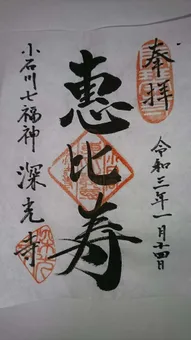 奉拝
令和三年一月十四日
惠比寿
小石川七福神
深光寺